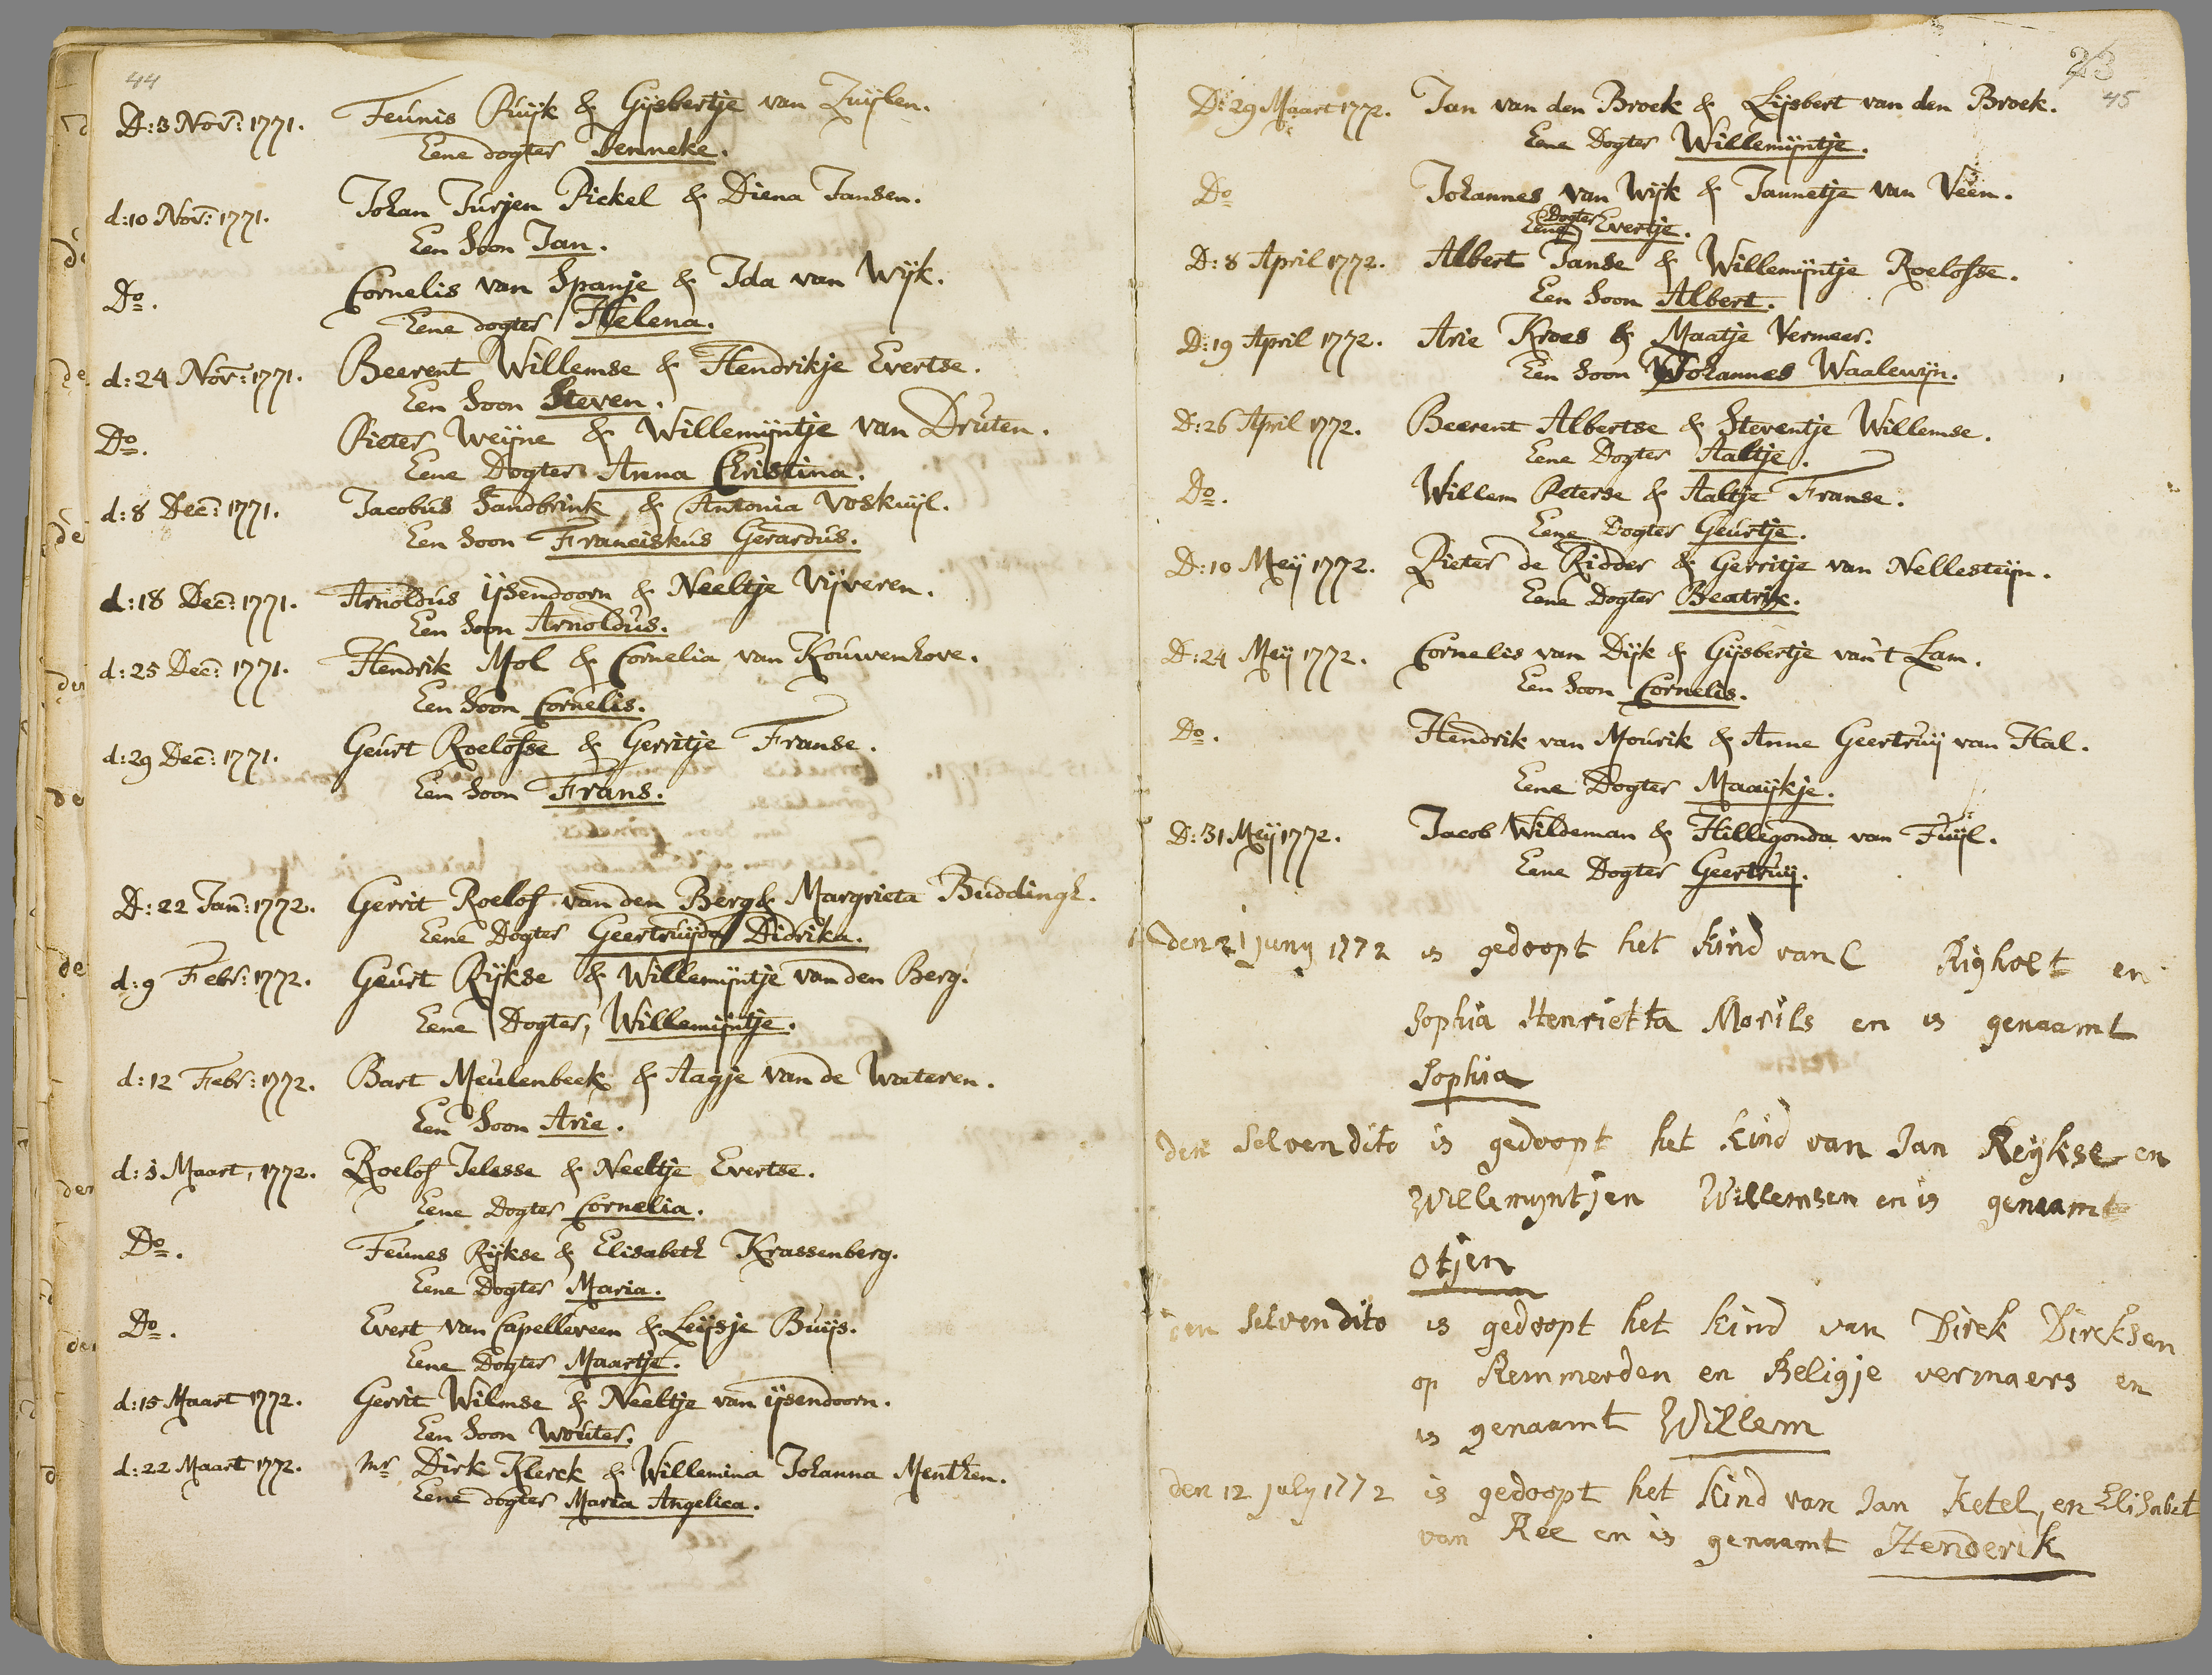 44
D: 3 Nov: 1771. Teunis Ruijk & Gijsbertje van Zuijlen.
Eene dogter Jenneke.
d: 10 Nov: 1771. Johan Jurjen Pickel & Diena Jansen.
Een Soon Jan.
Do. Cornelis van Spanje & Ida van Wijk.
Eene dogter Helena.
d: 24 Nov: 1771. Beerent Willemse & Hendrikje Evertse.
Een Soon Steven.
Do. Pieter Weijne & Willemijntje van Druten.
Eene Dogter Anna Christina.
d: 8 Dec: 1771. Jacobus Sandbrink & Antonia Voskuijl.
Een Soon Franciskus Gerardus.
d: 18 Dec: 1771. Arnoldus IJsendoorn & Neeltje Vijveren.
Een Soon Arnoldus.
d: 25 Dec: 1771. Hendrik Mol & Cornelia van Kouwenhove.
Een Soon Cornelis.
d: 29 Dec: 1771. Geurt Roelofse & Gerritje Franse.
Een Soon Frans.
D: 22 Jan: 1772. Gerrit Roelof van den Berg & Margrieta Buddingh.
Eene Dogter Geertruijda Didrika.
d: 9 Febr: 1772. Geurt Rijkse & Willemijntje van den Berg.
Eene Dogter, Willemijntje.
d: 12 Febr: 1772. Bart Meulenbeek & Aagje van de Wateren.
Een Soon Arie.
d: 1 Maart, 1772. Roelof Jelisse & Neeltje Evertse.
Eene Dogter Cornelia.
Do. Teunes Rijkse & Elisabeth Krassenberg.
Eene Dogter Maria.
Do. Evert van Capelleveen & Leijsje Buijs.
Eene Dogter Maartje.
d: 15 Maart 1772. Gerrit Wilmse & Neeltje van ijsendoorn.
Een Soon Wouter.
d: 22 Maart 1772. Mr Dirk Klerck & Willemina Johanna Menthen.
Eene dogter Maria Angelica.
23
45
D: 29 Maart 1772. Jan van den Broek & Lijsbert van den Broek.
Eene Dogter Willemijntje.
Do Johannes van Wijk & Jannetje van Veen.
Eene Dogter Evertje.
D: 8 April 1772. Albert Janse & Willemijntje Roelofse.
Een Soon Albert.
D: 19 April 1772. Arie Kroes & Maatje Vermeer.
Een Soon Johannes Waalewijn.
D: 26 April 1772. Beerent Albertse & Steventje Willemse.
Eene Dogter Aaltje.
Do. Willem Peterse & Aaltje Franse.
Eene Dogter Geurtje.
D: 10 Meij 1772. Pieter de Ridder & Gerritje van Nellesteijn.
Eene Dogter Beatrix.
D: 24 Meij 1772. Cornelis van Dijk & Gijsbertje van't Lam.
Een Soon Cornelis.
Do. Hendrik van Mourik & Anne Geertruij van Hal.
Eene Dogter Maaijkje.
D: 31 Meij 1772. Jacob Wildeman & Hillegonda van Tuijl.
Eene Dogter Geertruij.
den 21 juny 1772 is gedoopt het kind van C Righolt en
Sophia Henrietta Morils en is genaamt
Sophia
den Selven dito is gedoopt het kind van Jan Reykse en
Willemyntjen Willemsen en is genaamt
Otjen
den Selven dito is gedoopt het kind van Direk Direksen
op Remmerden en Beligje vermaers en
is genaamt Willem
den 12 july 1772 is gedoopt het kind van Jan Ketel, en Elisabet
van Ree en is genaamt Henderik